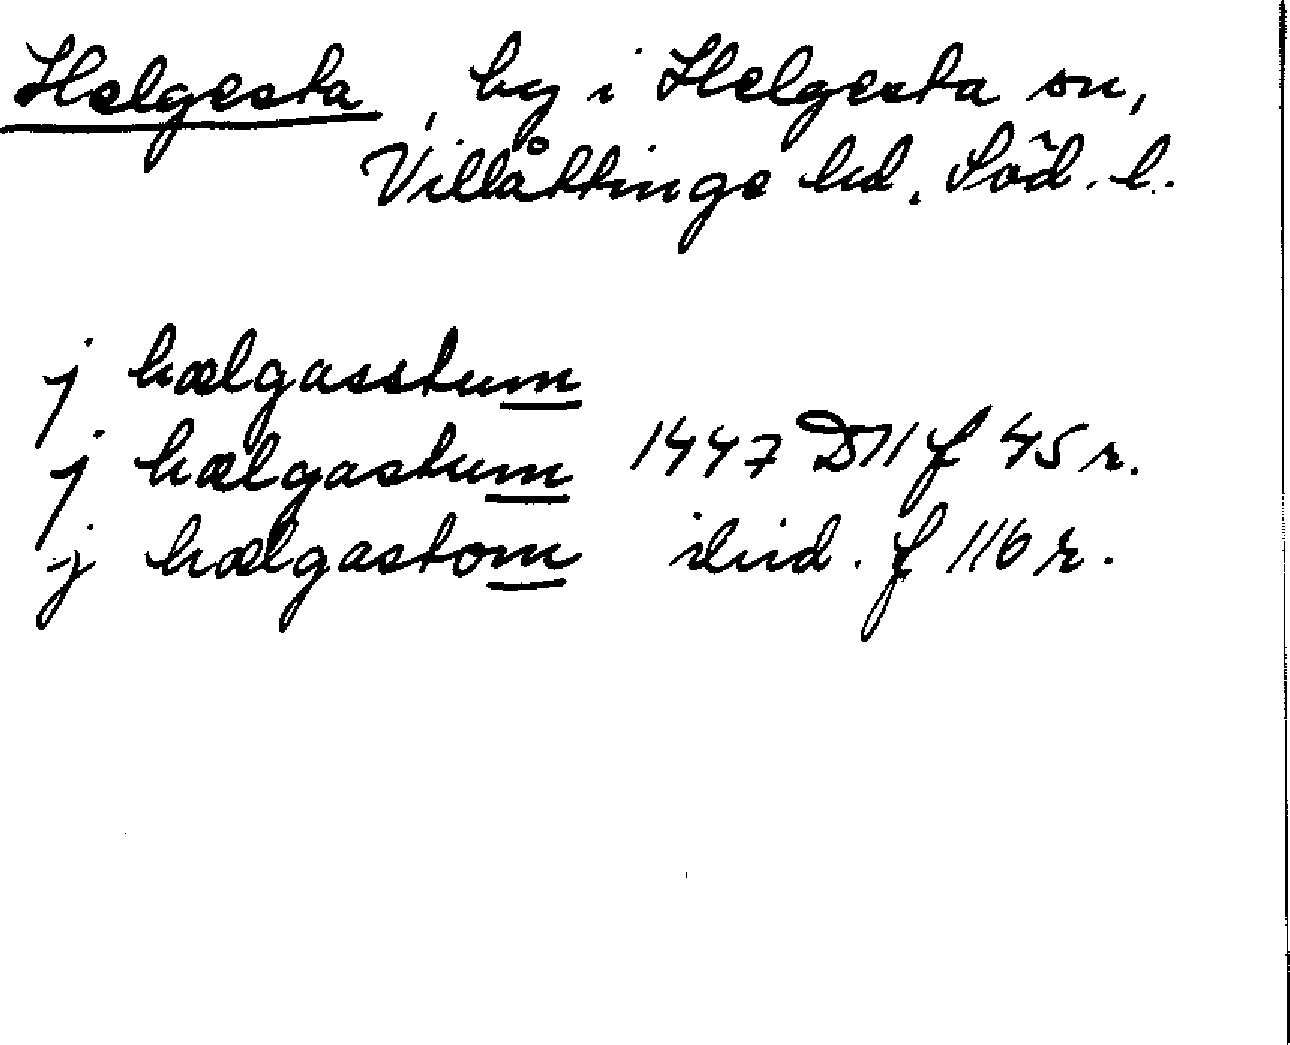 Helgesta, by i Helgesta sn,
Villåttinge hd. Söd. l.
j hælgasstum
j hælgastum 1447 D11 f 45 r.
j hælgastom ibid. f 116 r.